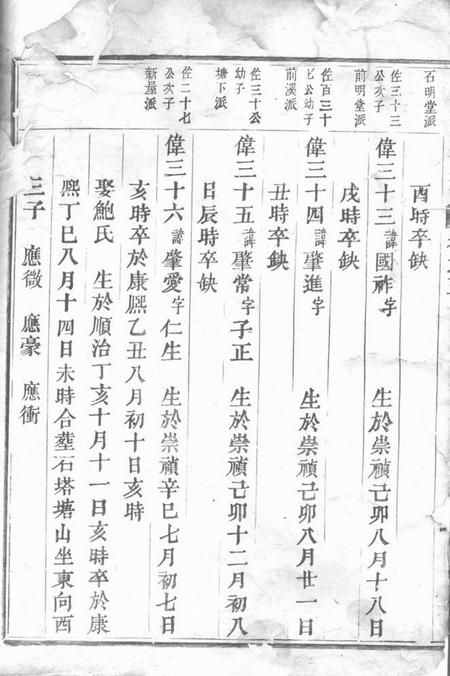 石明堂派
酉時卒缺
佐三十三
公次子
前明堂派
偉三十三諱國祚字　生於崇禎己卯八月十八日
戌時卒缺
佐百三十
七公幼子
前溪派
偉三十四諱肇進字　生於崇禎己卯八月廿一日
丑時卒缺
佐三十公
幼子
塘下派
偉三十五諱肇常字子正　生於崇禎己卯十二月初八
日辰時卒缺
佐二十七
公次子
新屋派
偉三十六諱肇愛字仁生　生於崇禎辛巳七月初七日
亥時卒於康熙乙丑八月初十日亥時
娶鮑氏　生於順治丁亥十月十一日亥時卒於康
熙丁巳八月十四日未時合塟石塔塘山坐東向酉
三子　應微　應豪　應衝